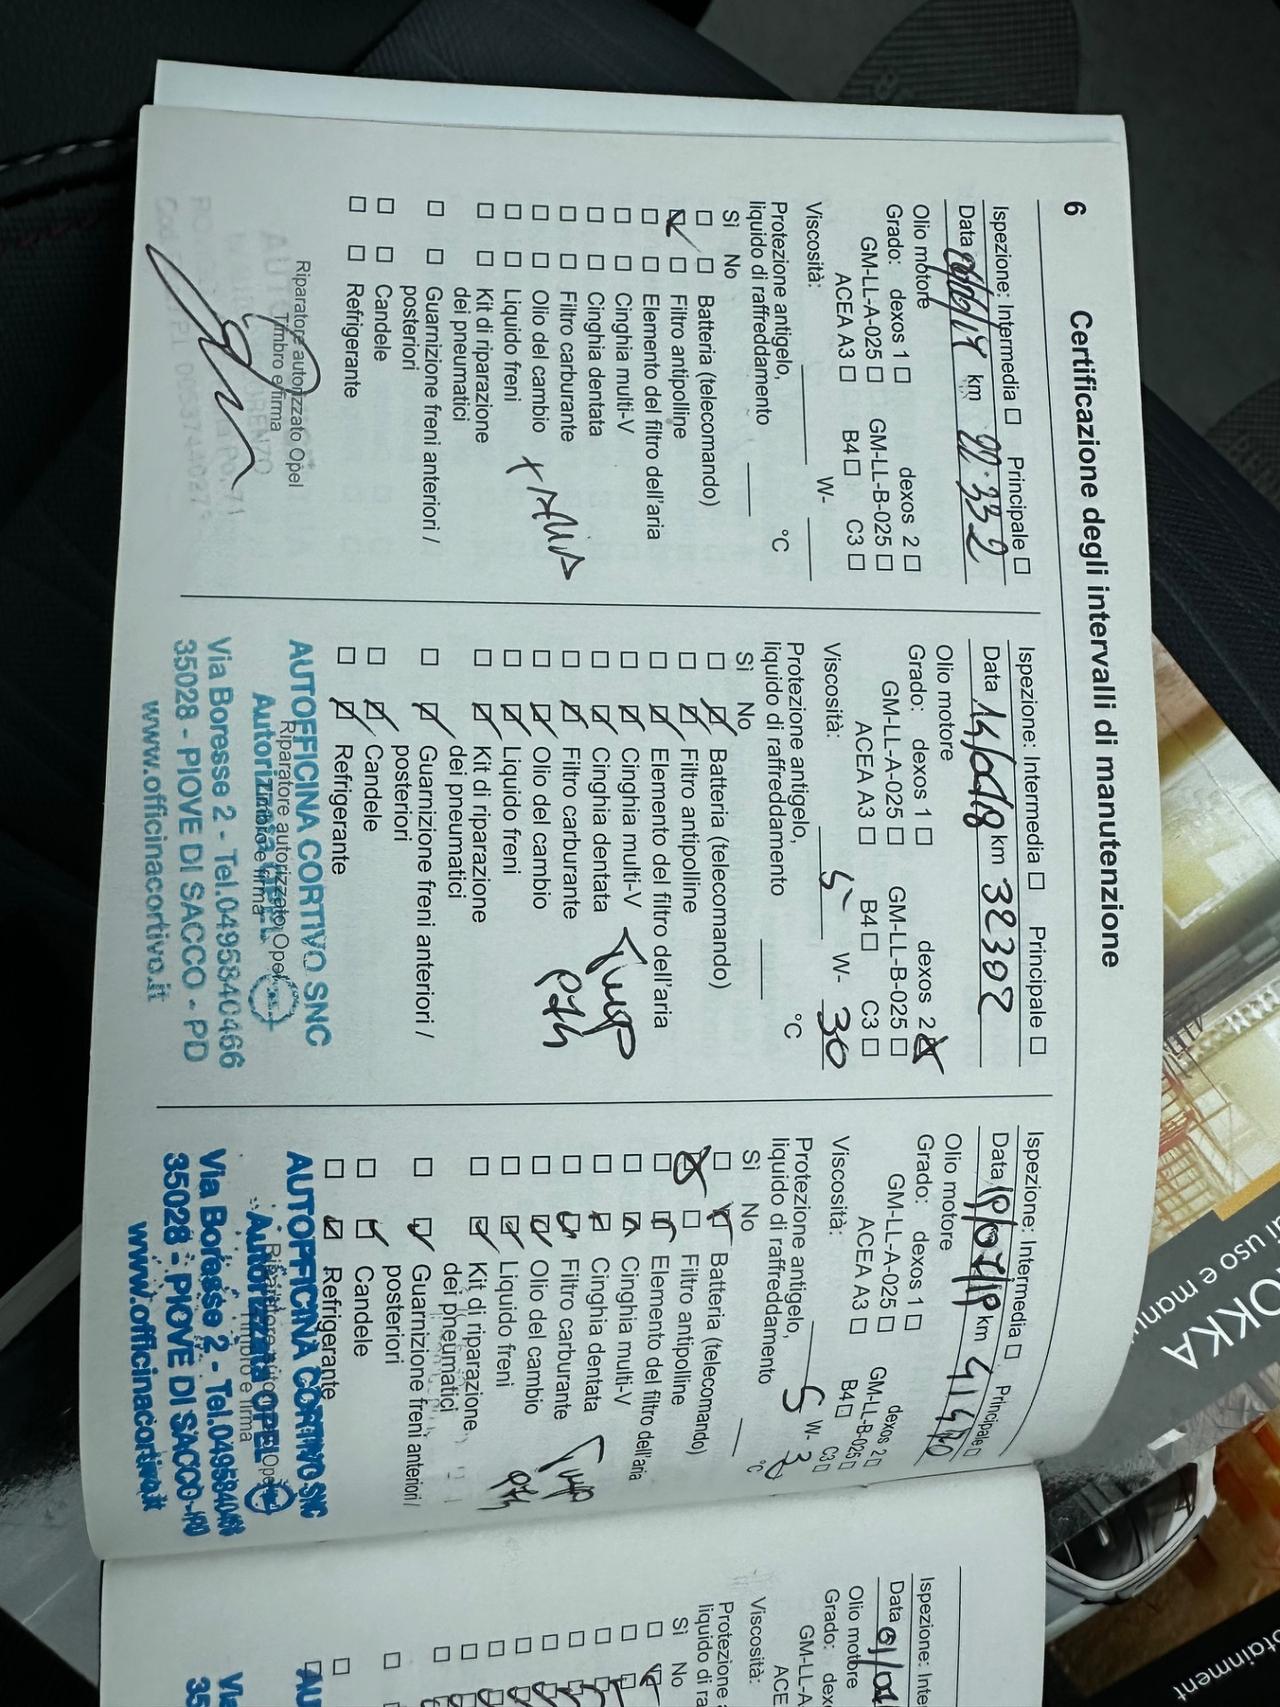 6
Certificazione degli intervalli di manutenzione
Ispezione: Intermedia ☐ Principale ☐
Data km 22.332
Olio motore
Grado: dexos 1 ☐ dexos 2 ☐
GM-LL-A-025 ☐ GM-LL-B-025 ☐
ACEA A3 ☐ B4 ☐ C3 ☐
Viscosità: W-
Protezione antigelo,
liquido di raffreddamento °C
Sì No
Batteria (telecomando)
Filtro antipolline
Elemento del filtro dell'aria
Cinghia multi-V
Cinghia dentata
Filtro carburante
Olio del cambio
Liquido freni
Kit di riparazione
dei pneumatici
Guarnizione freni anteriori /
posteriori
Candele
Refrigerante
Riparatore autorizzato Opel
Timbro e firma
Ispezione: Intermedia ☐ Principale ☐
Data km 32302
Olio motore
Grado: dexos 1 ☐ dexos 2
GM-LL-A-025 ☐ GM-LL-B-025 ☐
ACEA A3 ☐ B4 ☐ C3 ☐
Viscosità: 5 W- 30
Protezione antigelo,
liquido di raffreddamento °C
Sì No
Batteria (telecomando)
Filtro antipolline
Elemento del filtro dell'aria
Cinghia multi-V
Cinghia dentata
Filtro carburante
Olio del cambio
Liquido freni
Kit di riparazione
dei pneumatici
Guarnizione freni anteriori /
posteriori
Candele
Refrigerante
AUTOFFICINA CORTIVO SNC
Riparatore autorizzato Opel
Timbro e firma
Via Boresse 2 - Tel.0495840466
35028 - PIOVE DI SACCO - PD
www.officinacortivo.it
Ispezione: Intermedia ☐ Principale ☐
Data km
Olio motore
Grado: dexos 1 ☐ dexos 2 ☐
GM-LL-A-025 ☐ GM-LL-B-025 ☐
ACEA A3 ☐ B4 ☐ C3 ☐
Viscosità: 5 W- 30
Protezione antigelo,
liquido di raffreddamento °C
Sì No
Batteria (telecomando)
Filtro antipolline
Elemento del filtro dell'aria
Cinghia multi-V
Cinghia dentata
Filtro carburante
Olio del cambio
Liquido freni
Kit di riparazione
dei pneumatici
Guarnizione freni anteriori /
posteriori
Candele
Refrigerante
AUTOFFICINA CORTIVO SNC
Autorizzata OPEL
Timbro e firma
Via Boresse 2 - Tel.0495840466
35028 - PIOVE DI SACCO - PD
www.officinacortivo.it
Ispezione:
Data
Olio motore
Grado:
Viscosità:
Sì No